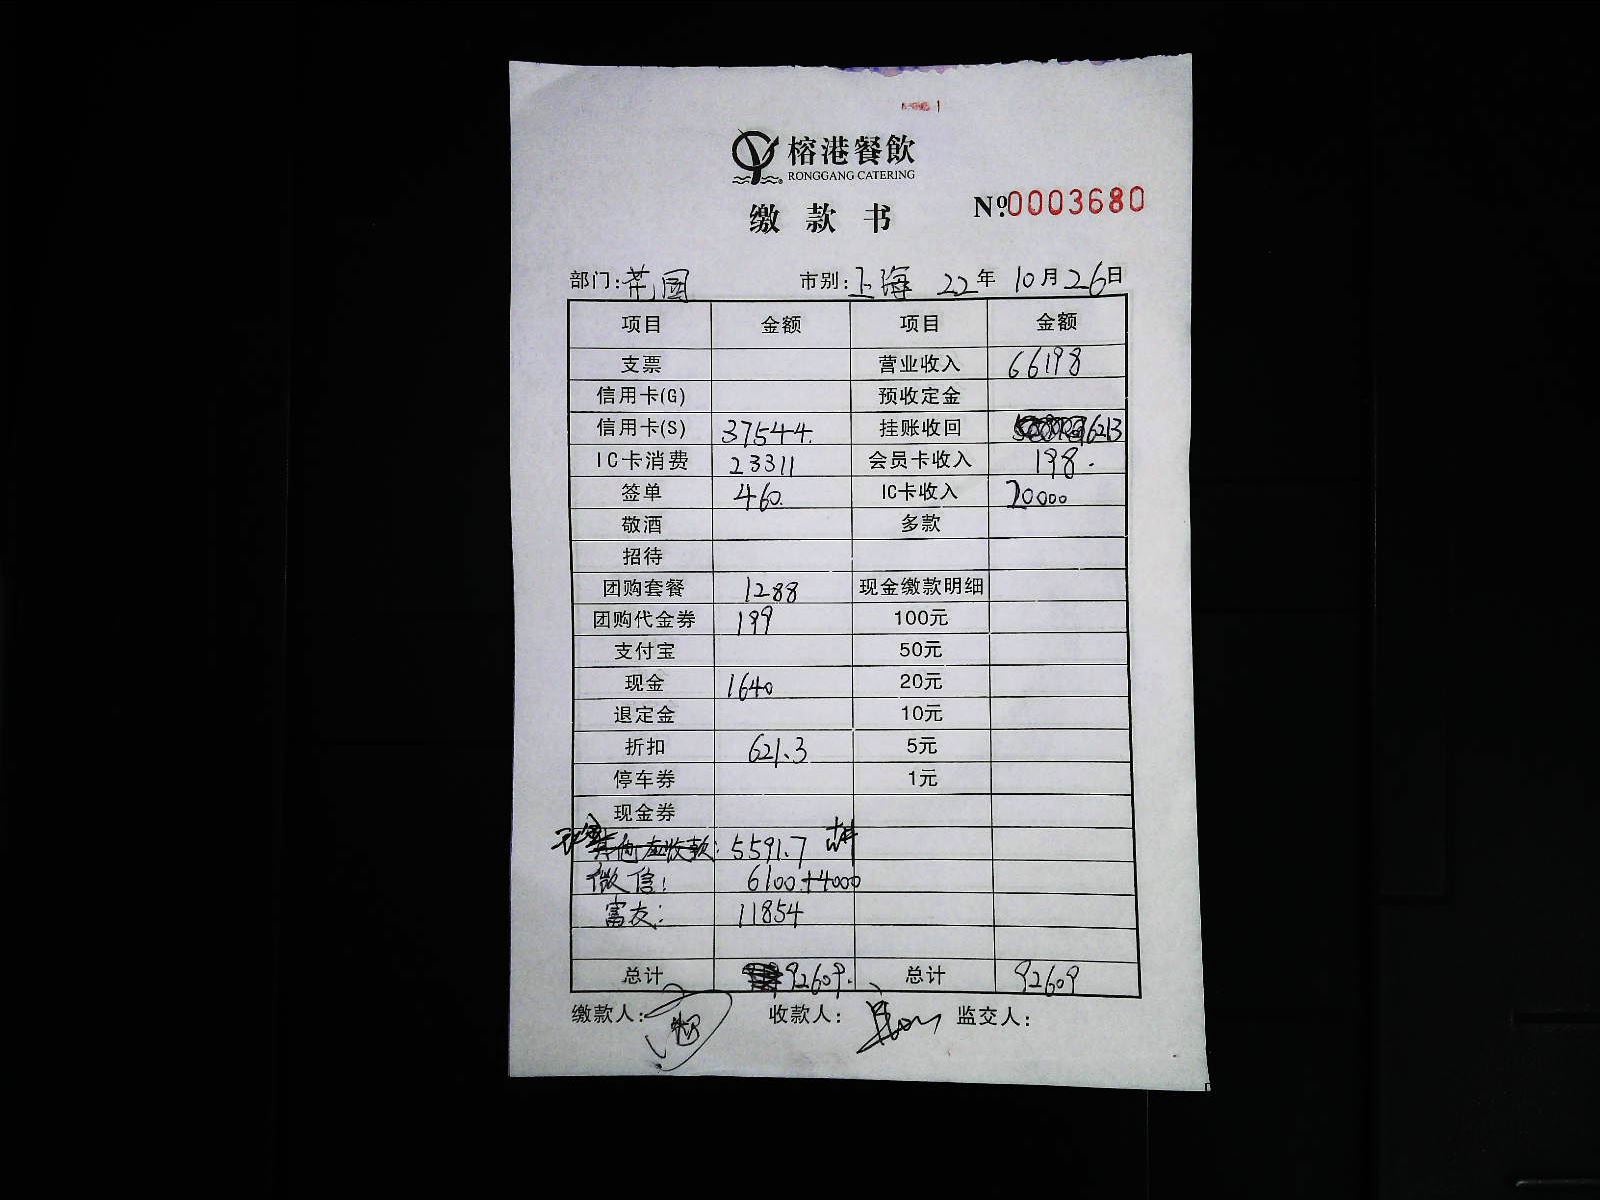 榕港餐飲
RONGGANG CATERING
缴款书 Nº.0003680
部门:花园 市别:上海 22年10月26日
项目 金额 项目 金额
支票 营业收入 66198
信用卡(G) 预收定金
信用卡(S) 37544. 挂账收回 6213
IC卡消费 23311 会员卡收入 198.
签单 460. IC卡收入 20000
敬酒 多款
招待
团购套餐 1288 现金缴款明细
团购代金券 199 100元
支付宝 50元
现金 1640 20元
退定金 10元
折扣 621.3 5元
停车券 1元
现金券
其他应收款: 5591.7
微信: 6100+4000
富友: 11854
总计 92609. 总计 92609
缴款人: 收款人: 监交人: